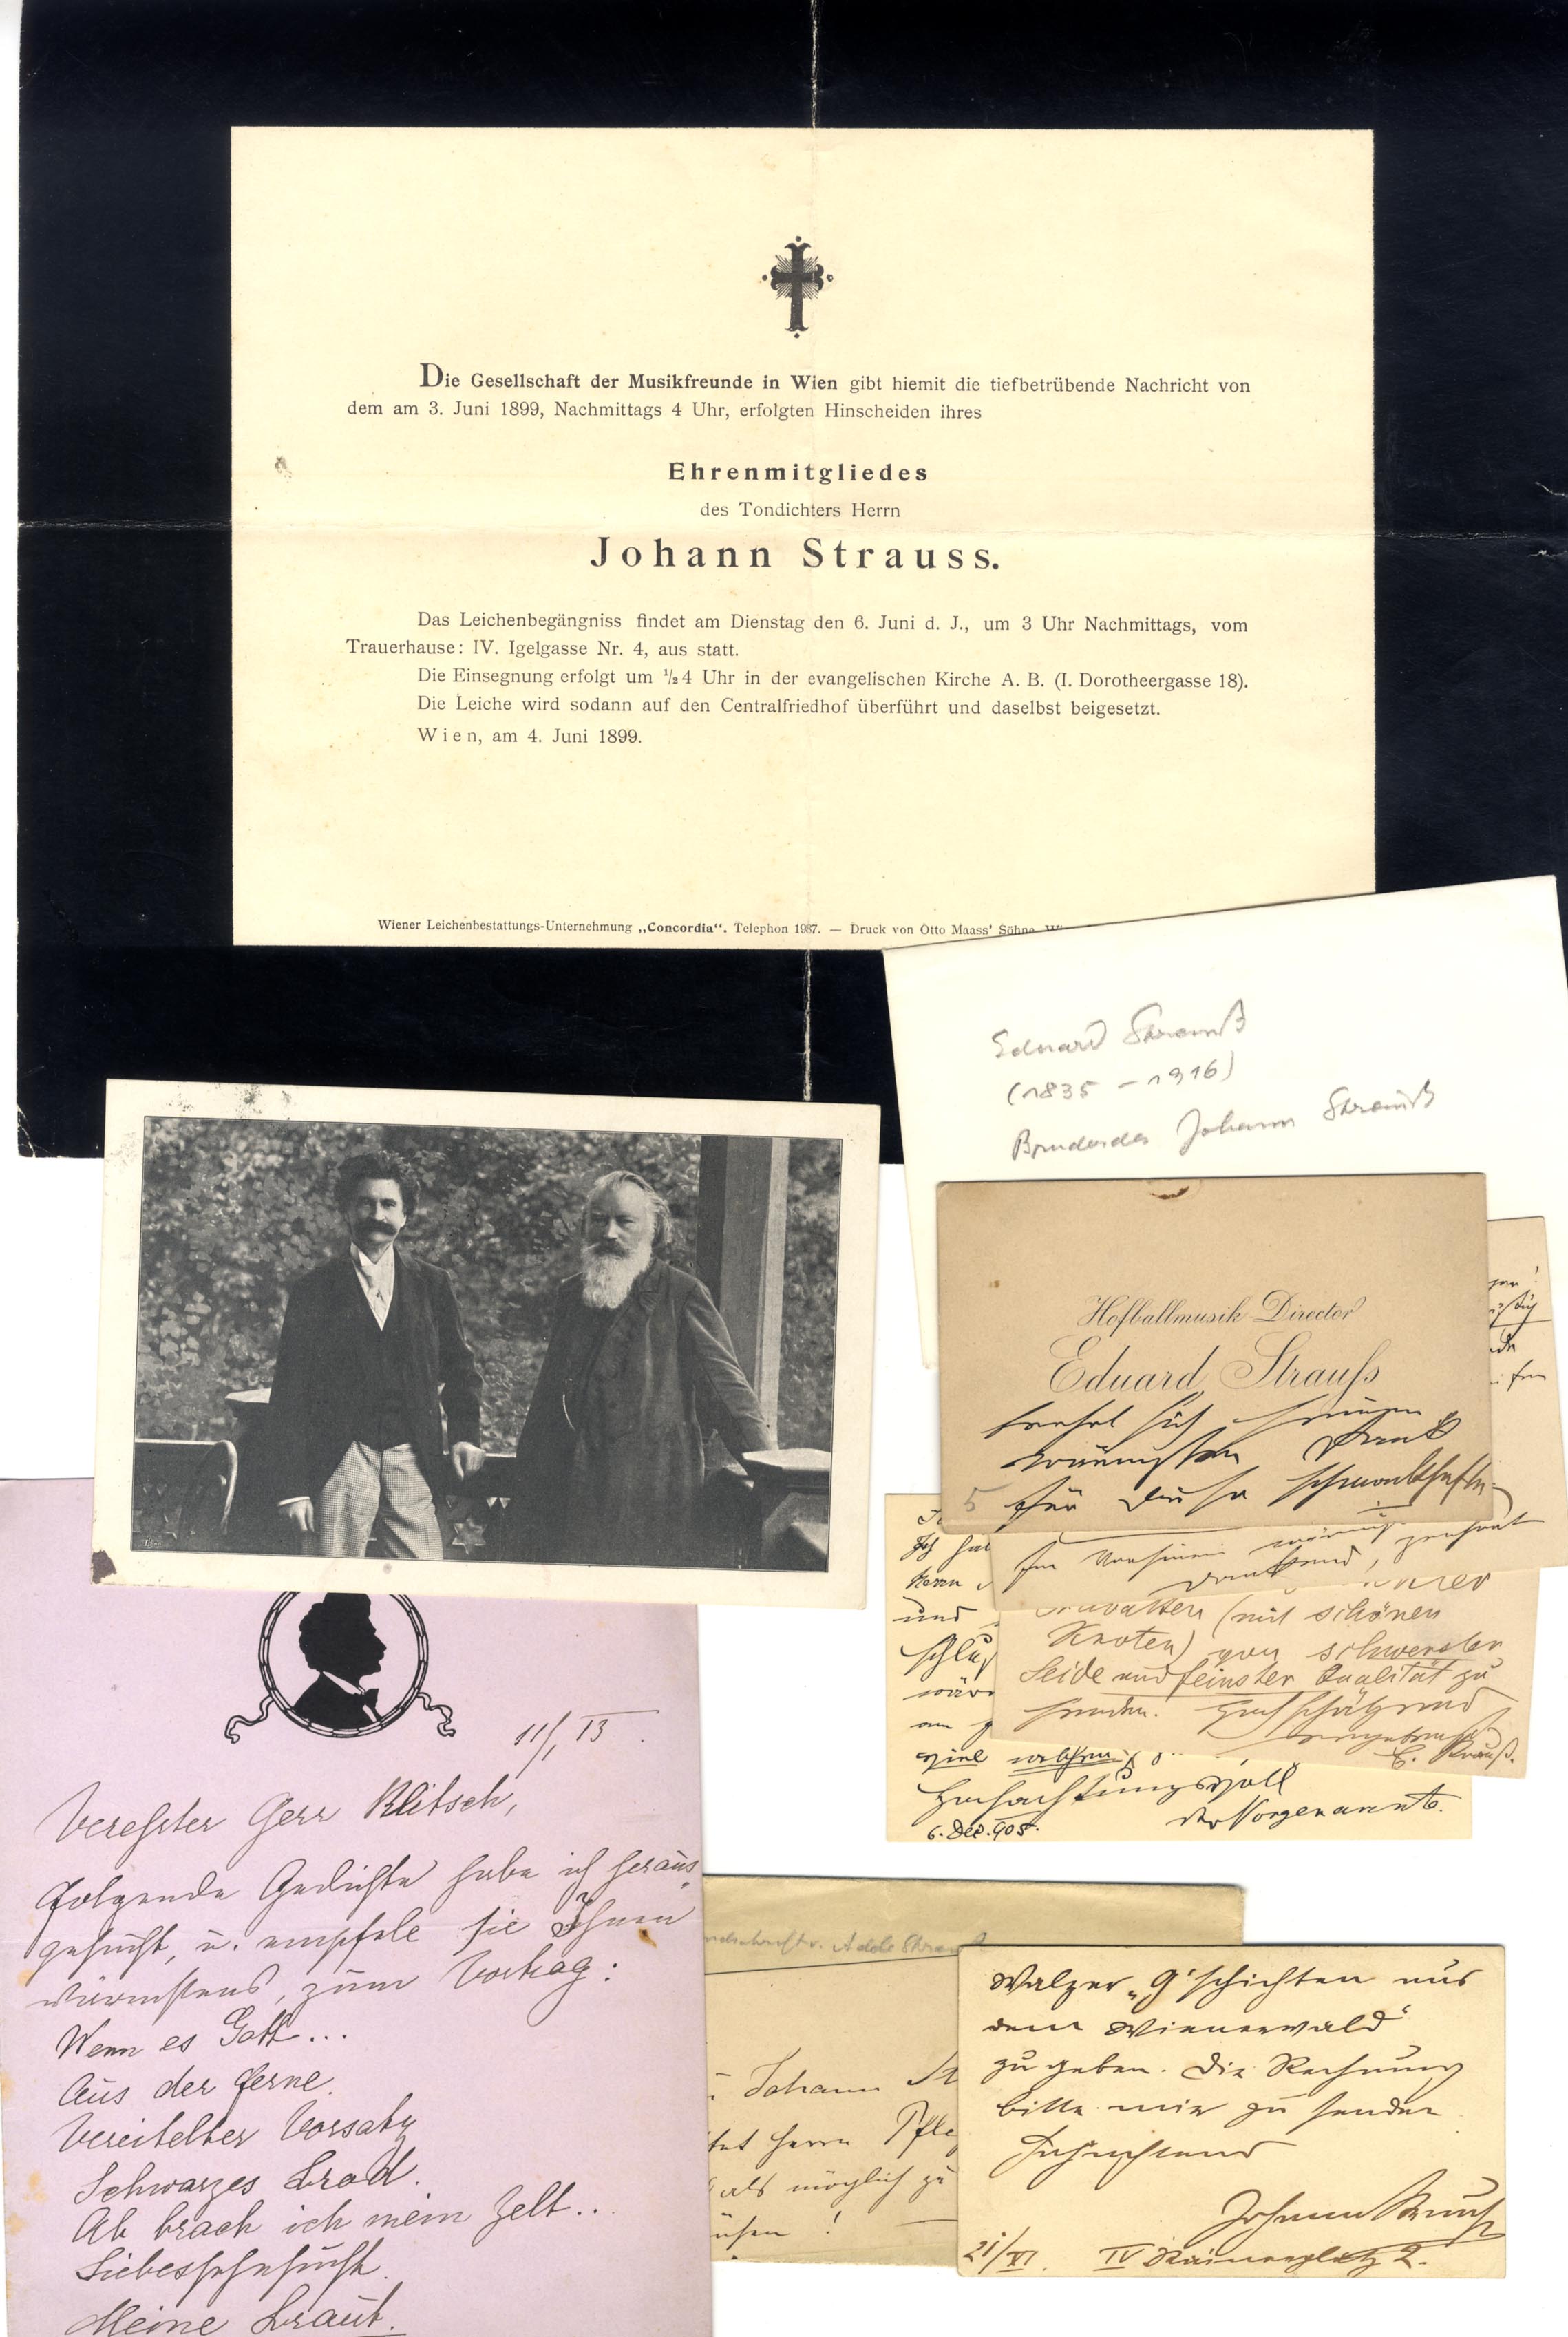 Die Gesellschaft der Musikfreunde in Wien gibt hiemit die tiefbetrübende Nachricht von
dem am 3. Juni 1899, Nachmittags 4 Uhr, erfolgten Hinscheiden ihres
Ehrenmitgliedes
des Tondichters Herrn
Johann Strauss.
Das Leichenbegängniss findet am Dienstag den 6. Juni d. J., um 3 Uhr Nachmittags, vom
Trauerhause: IV. Igelgasse Nr. 4, aus statt.
Die Einsegnung erfolgt um ½4 Uhr in der evangelischen Kirche A. B. (I. Dorotheergasse 18).
Die Leiche wird sodann auf den Centralfriedhof überführt und daselbst beigesetzt.
Wien, am 4. Juni 1899.
Wiener Leichenbestattungs-Unternehmung „Concordia“. Telephon 1987. — Druck von Otto Maass' Söhne
Eduard Strauß
(1835 – 1916)
Bruder des Johann Strauß
Hofballmusik-Director
Eduard Strauss
wärmsten Dank
5 für
(mit schönen
Knoten) von schwerster
Seide und feinster Qualität zu
senden. Hochschätzend
E. Strauß.
Hochachtungsvoll
der Vorgenannte.
6. Dec. 905.
11/I 13
Verehrter Herr Klitsch,
folgende Gedichte habe ich heraus-
gesucht, u. empfele sie Ihnen
wärmstens, zum Vortrag:
Wenn es Gott...
Aus der Ferne.
Vereitelter Vorsatz
Schwarzes Brod.
Ab brach ich mein Zelt..
Liebessehnsucht.
Meine Braut.
Adele
Johann
Herrn
als möglich zu
Walzer „G'schichten aus
dem Wienerwald“
zu geben. Die Rechnung
bitte mir zu senden
Johann Strauss
21/XI. IV Rainerplatz 2.